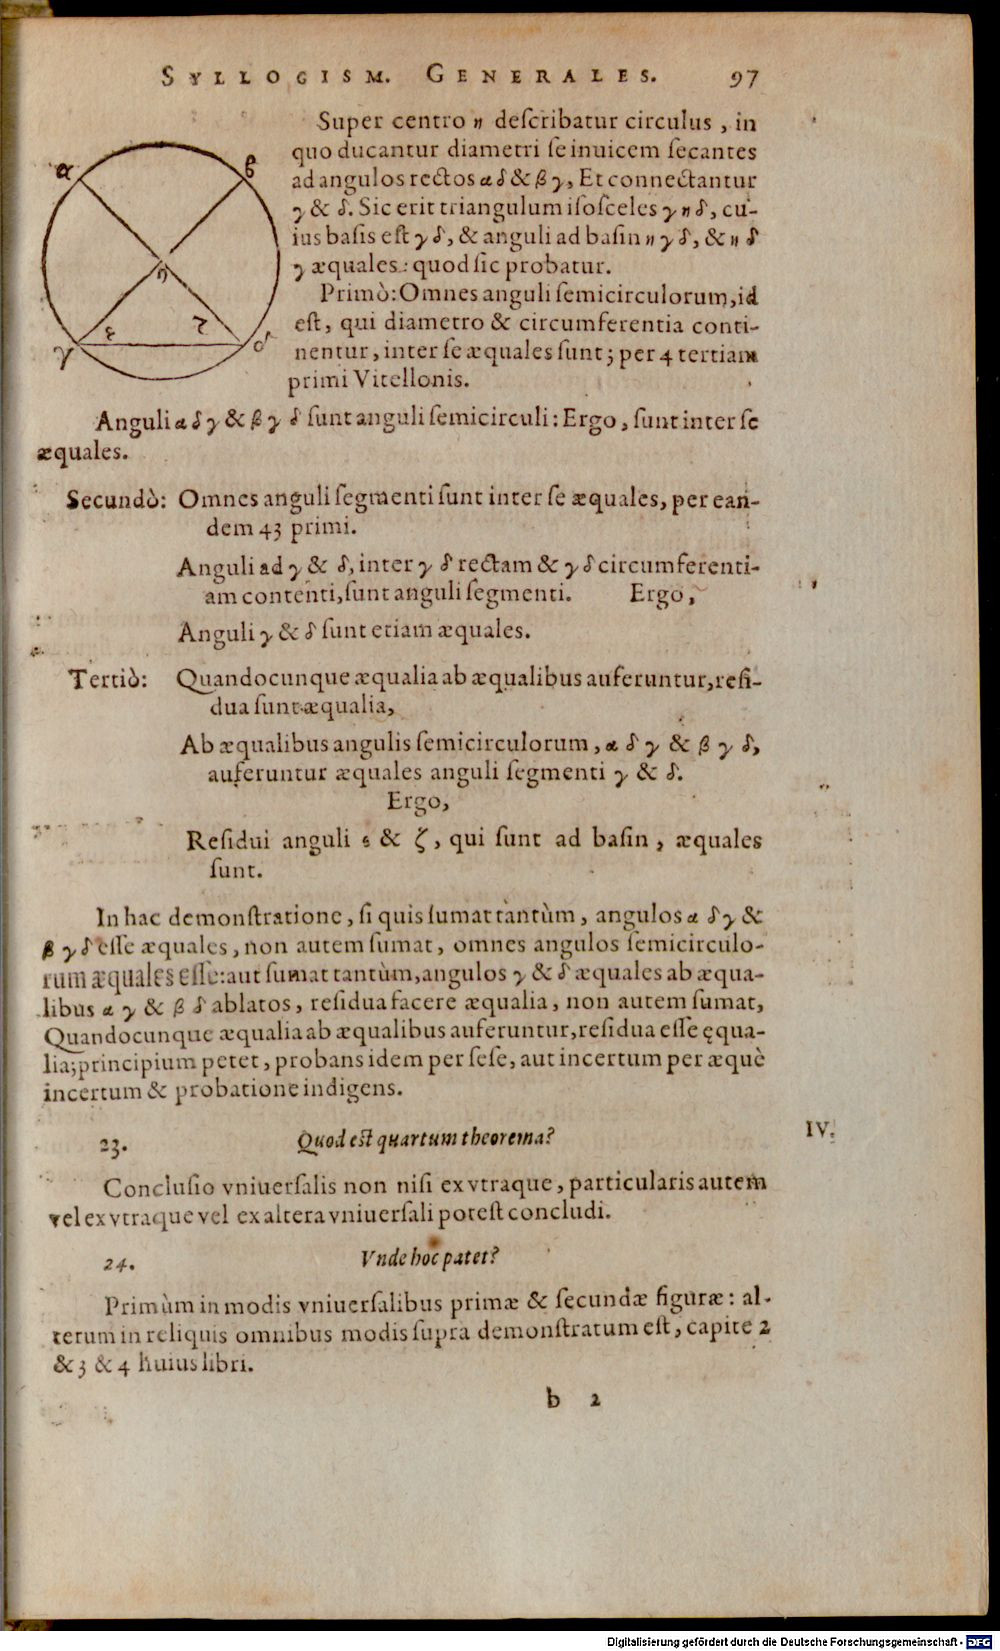 SYLLOGISM. GENERALES. 97
Super centro η deſcribatur circulus, in
quo ducantur diametri ſe inuicem ſecantes
ad angulos rectos α δ & β γ, Et connectantur
γ & δ. Sic erit triangulum iſoſceles γ η δ, cu-
ius baſis eſt γ δ, & anguli ad baſin η γ δ, & η δ
γ æquales: quod ſic probatur.
Primò: Omnes anguli ſemicirculorum, id
eſt, qui diametro & circumferentia conti-
nentur, inter ſe æquales ſunt; per 4 tertiam
primi Vitellonis.
α
β
η
ε
ζ
γ
δ
Anguli α δ γ & β γ δ ſunt anguli ſemicirculi: Ergo, ſunt inter ſe
æquales.
Secundò: Omnes anguli ſegmenti ſunt inter ſe æquales, per ean-
dem 43 primi.
Anguli ad γ & δ, inter γ δ rectam & γ δ circumferenti-
am contenti, ſunt anguli ſegmenti. Ergo,
Anguli γ & δ ſunt etiam æquales.
Tertiò: Quandocunque æqualia ab æqualibus auferuntur, reſi-
dua ſunt æqualia,
Ab æqualibus angulis ſemicirculorum, α δ γ & β γ δ,
auferuntur æquales anguli ſegmenti γ & δ.
Ergo,
Reſidui anguli ε & ζ, qui ſunt ad baſin, æquales
ſunt.
In hac demonſtratione, ſi quis ſumat tantùm, angulos α δ γ &
β γ δ eſſe æquales, non autem ſumat, omnes angulos ſemicirculo-
rum æquales eſſe: aut ſumat tantùm, angulos γ & δ æquales ab æqua-
libus α γ & β δ ablatos, reſidua facere æqualia, non autem ſumat,
Quandocunque æqualia ab æqualibus auferuntur, reſidua eſſe ęqua-
lia; principium petet, probans idem per ſeſe, aut incertum per æquè
incertum & probatione indigens.
23. Quod eſt quartum theorema? IV.
Concluſio vniuerſalis non niſi ex vtraque, particularis autem
vel ex vtraque vel ex altera vniuerſali poteſt concludi.
24. Vnde hoc patet?
Primùm in modis vniuerſalibus primæ & ſecundæ figuræ: al-
terum in reliquis omnibus modis ſupra demonſtratum eſt, capite 2
& 3 & 4 huius libri.
b 2
Digitalisierung gefördert durch die Deutsche Forschungsgemeinschaft - DFG